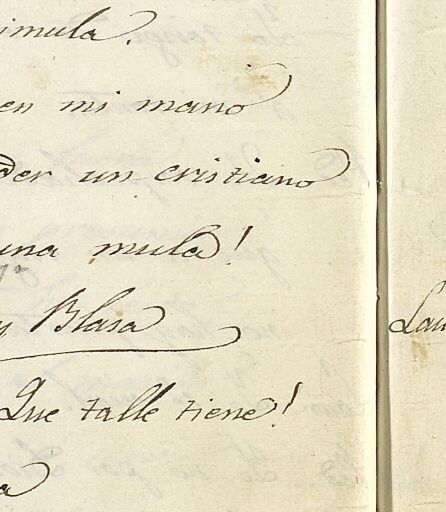 imula.
en mi mano
der un cristiano
una mula!
y Blasa
Que talle tiene!
a
Lau